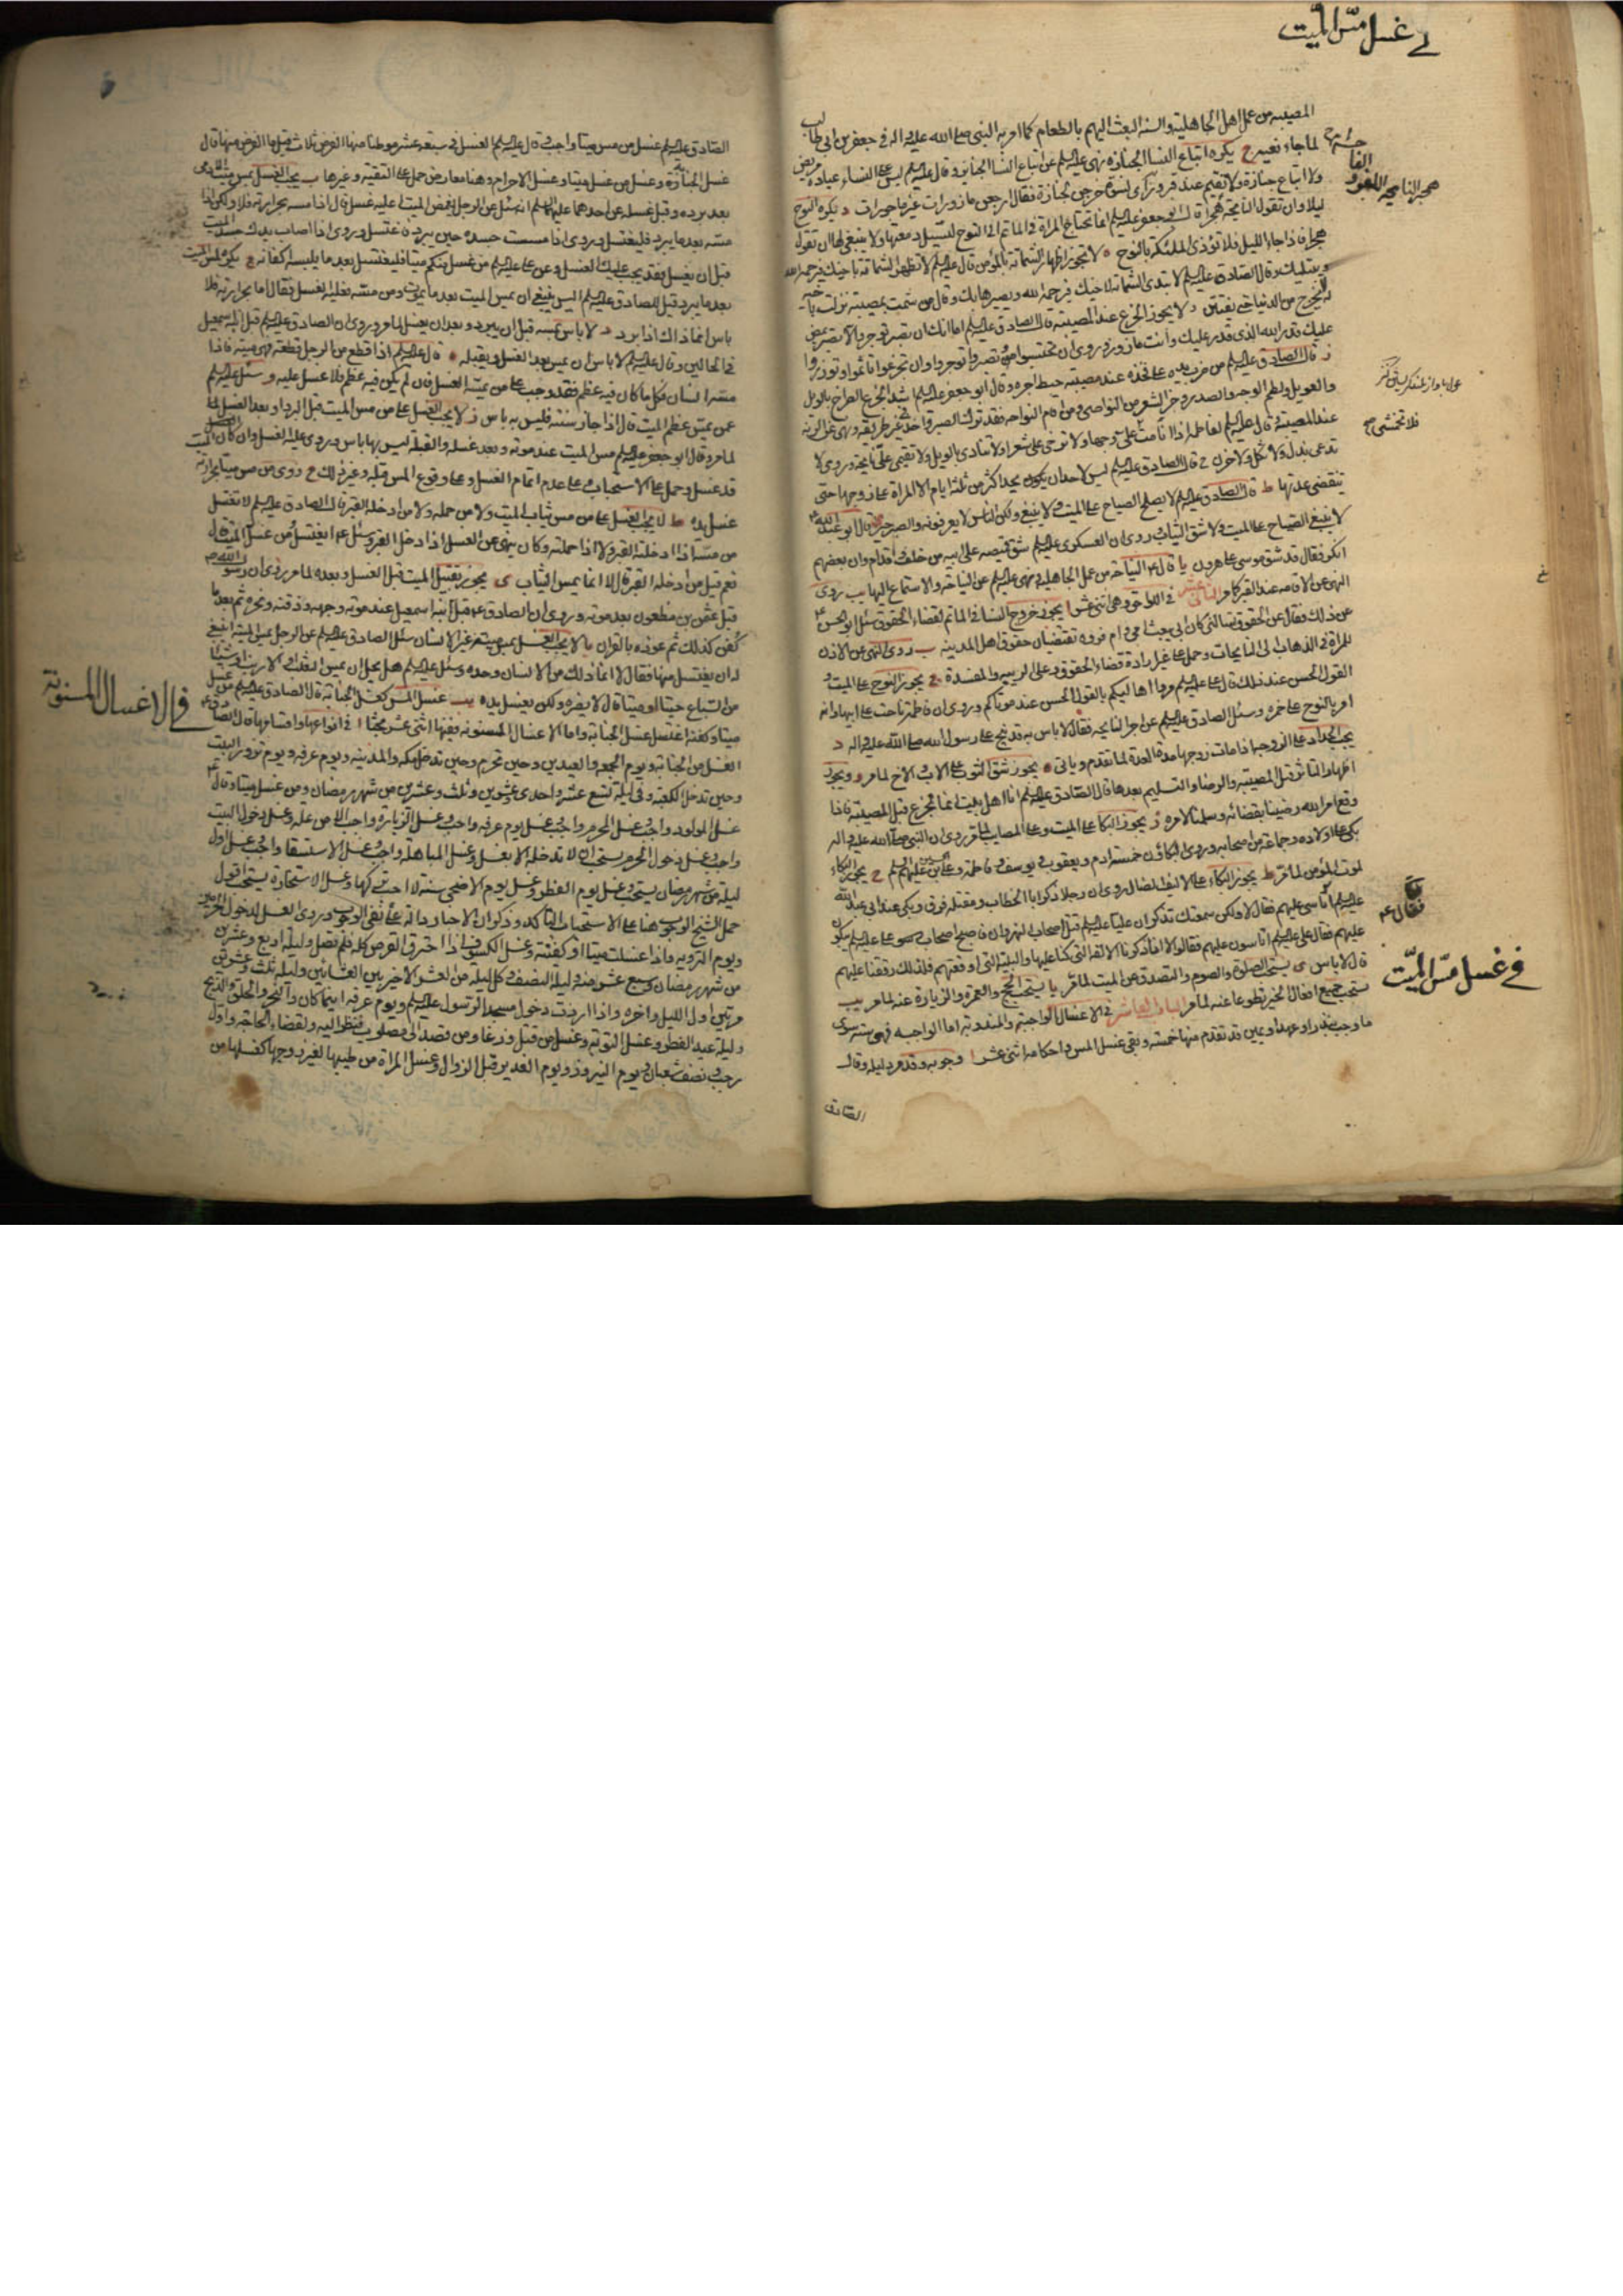 في غسل مسّ الميّت
المصيبة من عمل اهل الجاهلية والسنة البعث اليهم بالطعام كما امر به النبي صلى الله عليه واله في جعفر بن ابي طالب
لما جاء نعيه ج يكره اتباع النساء الجنازة نهى عليه السلم عن اتباع النساء الجنايز وقال عليه السلم ليس على النساء عيادة مريض
ولا اتباع جنازة ولا تقيم عند قبر
ليلا وان تقول النايحة هجرا قال ابو جعفر عليه السلم انما تحتاج المراة في الماتم الى النوح لتسيل دمعتها ولا ينبغي لها ان تقول
هجرا فاذا جاء الليل فلا تؤذي الملئكة بالنوح ه لا يجوز اظهار الشماتة بالمؤمن قال عليه السلم لا تظهر الشماتة باخيك فيرحمه الله
ويبتليك وقال الصادق عليه السلم لا تبدي الشماتة لاخيك فيرحمه الله ويصيرها بك وقال من شمت بمصيبة نزلت باخيه
لم يخرج من الدنيا حتى يفتتن و لا يجوز الجزع عند المصيبة قال الصادق عليه السلم اما انك ان تصبر توجر والا تصبر يمض
عليك قدر الله الذي قدر عليك وانت مازور وروي ان تحتسبوا وتصبروا توجروا وان تجزعوا تاثموا وتوزروا
ز قال الصادق عليه السلم من ضرب يده على فخذه عند مصيبة حبط اجره وقال ابو جعفر عليه السلم اشد الجزع الصراخ بالويل
والعويل ولطم الوجه والصدر وجز الشعر من النواصي ومن اقام النواحة فقد ترك الصبر واخذ في غير طريقه
عند المصيبة قال عليه السلم لفاطمة اذا انا مت فلا تخمشي علي وجها ولا ترخي علي شعرا ولا تنادي بالويل ولا تقيمي علي نايحة وروي لا
تدعي بذل ولا ثكل ولا حزن ح قال الصادق عليه السلم ليس لاحد ان يحد اكثر من ثلثة ايام الا المراة على زوجها حتى
تنقضي عدتها ط قال الصادق عليه السلم لا يصلح الصياح على الميت ولا ينبغي ولكن الناس لا يعرفونه والصبر خير قال ابو عبد الله
لا ينبغي الصياح على الميت ولا شق الثياب وروي ان العسكري عليه السلم شق قميصه على ابيه من خلف وقدام وان بعضهم
انكر فقال قد شق موسى على هرون يا قال النياحة من عمل الجاهلية نهى عليه السلم عن النياحة والاستماع اليها يب روي
النهي عن الاقامة عند القبر كما مر الثاني عشر في اللواحق وهي اثني عشر ا يجوز خروج النساء في الماتم لقضاء الحقوق سئل ابو الحسن
عن ذلك فقال عن الحقوق تسالني كان ابي يبعث امي وام فروه تقضيان حقوق اهل المدينة ب روي النهي عن الاذن
للمراة في الذهاب الى النايحات وحمل على غير ارادة قضاء الحقوق وعلى الريبة والمفسدة ج يجوز النوح على الميت و
القول الحسن عند ذلك قال علي عليه السلم مروا اهاليكم بالقول الحسن عند موتاكم وروي ان فاطمة ناحت على ابيها وانه
امر بالنوح على حمزه وسئل الصادق عليه السلم عن اجر النايحة فقال لا باس به قد نيح على رسول الله صلى الله عليه واله د
يجب الحداد على الزوجة اذا مات زوجها مدة العدة لما تقدم وياتي ه يجوز شق الثوب على الاب والاخ لما مر و ويجوز
اظهار التاثر قبل المصيبة والرضا والتسليم بعدها قال الصادق عليه السلم انا اهل بيت انما نجزع قبل المصيبة فاذا
وقع امر الله رضينا بقضائه وسلمنا لامره ز يجوز البكا على الميت وعلى المصاب لما مر وروي ان النبي صلى الله عليه واله
بكى على اولاده وجماعة من اصحابه وروي البكاؤن خمسة ادم ويعقوب ويوسف وفاطمة وعلي بن الحسين عليهم السلم ح يجوز البكاء
لموت المؤمن لما مر ط يجوز البكاء على الاليف الضال روي ان رجلا ذكر ابا الخطاب ومقتله فرق وبكى عند ابي عبد الله
عليه السلم اتاسى عليهم فقال لا ولكن سمعتك تذكر ان عليا عليه السلم قتل اصحاب النهروان فاصبح اصحاب علي عليه السلم يبكون
عليهم فقال علي عليه السلم اتاسون عليهم فقالوا لا انا ذكرنا الالفة التي كنا عليها والبلية التي اوقعتهم فلذلك رققنا عليهم
قال لا باس ى يستحب الصلوة والصوم والتصدق عن الميت لما مر يا يستحب الحج والعمرة والزيارة عنه لما مر يب
يستحب جميع افعال الخير تطوعا عنه لما مر الباب العاشر في الاغسال الواجبة والمندوبة اما الواجبه فهي ستة سوى
ما وجب بنذر او عهد او يمين قد تقدم منها خمسة وبقي غسل المس واحكامه اثنى عشر ا وجوبه وقد مر دليله وقال
الصادق
فلا تخمشي صح
فقال ع
في غسل مسّ الميّت
الصادق عليه السلم غسل من مس ميتا واجب وقال عليه السلم الغسل في سبعة عشر موطنا منها الفرض ثلاث فقيل ما الفرض منها قال
غسل الجنابة وغسل من غسل ميتا وغسل الاحرام وهنا معارض حمل على التقية وغيرها ب يجب الغسل بمس ميت الادمي
بعد برده وقبل غسله عن احدهما عليهما السلم انه سئل عن الرجل يغمض الميت اعليه غسل قال اذا مسه بحرارته فلا ولكن اذا
مسه بعد ما يبرد فليغتسل وروي اذا مسست جسده حين يبرد فاغتسل وروي اذا اصاب يدك جسد الميت
قبل ان يغسل فقد يجب عليك الغسل وعن علي عليه السلم من غسل منكم ميتا فليغتسل بعد ما يلبسه اكفانه ج يكره مس الميت
بعد ما يبرد قيل للصادق عليه السلم اليس ينبغي ان يمس الميت بعد ما يموت ومن مسه فعليه الغسل فقال اما بحرارته فلا
باس انما ذاك اذا برد د لا باس بمسه قبل ان يبرد وبعد ان يغسل لما مر وروي ان الصادق عليه السلم قبل ابنه اسمعيل
في الحالين وقال عليه السلم لا باس ان يمس بعد الغسل ويقبله ه قال عليه السلم اذا قطع من الرجل قطعة فهي ميتة فاذا
مسه انسان فكل ما كان فيه عظم فقد وجب على من يمسه الغسل فان لم يكن فيه عظم فلا غسل عليه و سئل عليه السلم
عمن يمس عظم الميت قال اذا جاز سنة فليس به باس ز لا يجب الغسل على من مس الميت قبل البرد او بعد الغسل لما
لما مر وقال ابو جعفر عليه السلم مس الميت عند موته وبعد غسله والقبلة ليس بها باس وروي عليه الغسل وان كان الميت
قد غسل وحمل على الاستحباب وعلى عدم اتمام الغسل وعلى وقوع المس قبله وغير ذلك ح روي من مس ميتا بحرارته
غسل يده ط لا يجب الغسل على من مس ثياب الميت ولا من حمله ولا من ادخله القبر قال الصادق عليه السلم لا تغتسل
من مسه اذا ادخلته القبر ولا اذا حملته وكان ينهى عن الغسل اذا دخل القبر وسئل ع ايغتسل من غسل الميت قال
نعم قيل من ادخله القبر قال لا انما يمس الثياب ى يجوز تقبيل الميت قبل الغسل وبعده لما مر وروي ان رسول الله ص
قبل عثمن بن مظعون بعد موته وروي ان الصادق ع قبل ابنه اسمعيل عند موته وجهه وذقنه ونحره ثم بعد ما
كفن كذلك ثم عوذه بالقران يا لا يجب الغسل بمس ميتة غير الانسان سئل الصادق عليه السلم عن الرجل يمس الميتة اينبغي
له ان يغتسل منها فقال لا انما ذلك من الانسان وحده وسئل عليه السلم هل يحل ان يمس الثعلب والارنب او شيئا
من السباع حيا او ميتا قال لا يضره ولكن يغسل يده يب غسل المس كغسل الجنابة قال الصادق عليه السلم من غسل
ميتا وكفنه اغتسل غسل الجنابة واما الاغسال المسنونة ففيها اثنى عشر بحثا ا في انواعها واقسامها قال الصادق ع
الغسل من الجنابة ويوم الجمعه والعيدين وحين تحرم وحين تدخل مكه والمدينه ويوم عرفه ويوم تزور البيت
وحين تدخل الكعبة وفي ليلة تسع عشرة واحدى وعشرين وثلث وعشرين من شهر رمضان ومن غسل ميتا وقال
غسل المولود واجب وغسل المحرم واجب وغسل يوم عرفه واجب وغسل الزيارة واجب الا من علة وغسل دخول البيت
واجب وغسل دخول الحرم يستحب ان لا تدخله الا بغسل وغسل المباهلة واجب وغسل الاستسقاء واجب وغسل اول
ليلة من شهر رمضان يستحب وغسل يوم الفطر وغسل يوم الاضحى سنة لا احب تركها وغسل الاستخارة يستحب اقول
حمل الشيخ الوجوب هنا على الاستحباب المؤكد وذكر ان الاخبار دالة على نفي الوجوب وروي الغسل لدخول الحرمين
ويوم التروية فاذا غسلت ميتا او كفنته وغسل الكسوف اذا احترق القرص كله فلم تصل وليلة اربع وعشرين
من شهر رمضان وسبع عشرة منه وليلة النصف وكل ليلة من العشر الاخير بين العشائين وليلة ثلث وعشرين
مرتين اول الليل واخره واذا اردت دخول مسجد الرسول عليه السلم ويوم عرفه اينما كان والنحر والحلق والذبح
وليلة عيد الفطر وغسل التوبة وغسل من قتل وزغا ومن قصد الى مصلوب فنظر اليه ولقضاء الحاجة واول
رجب ونصف شعبان ويوم النيروز ويوم الغدير قبل الزوال وغسل المراة من طيبها لغير زوجها كغسلها من
في الاغسال المسنونة